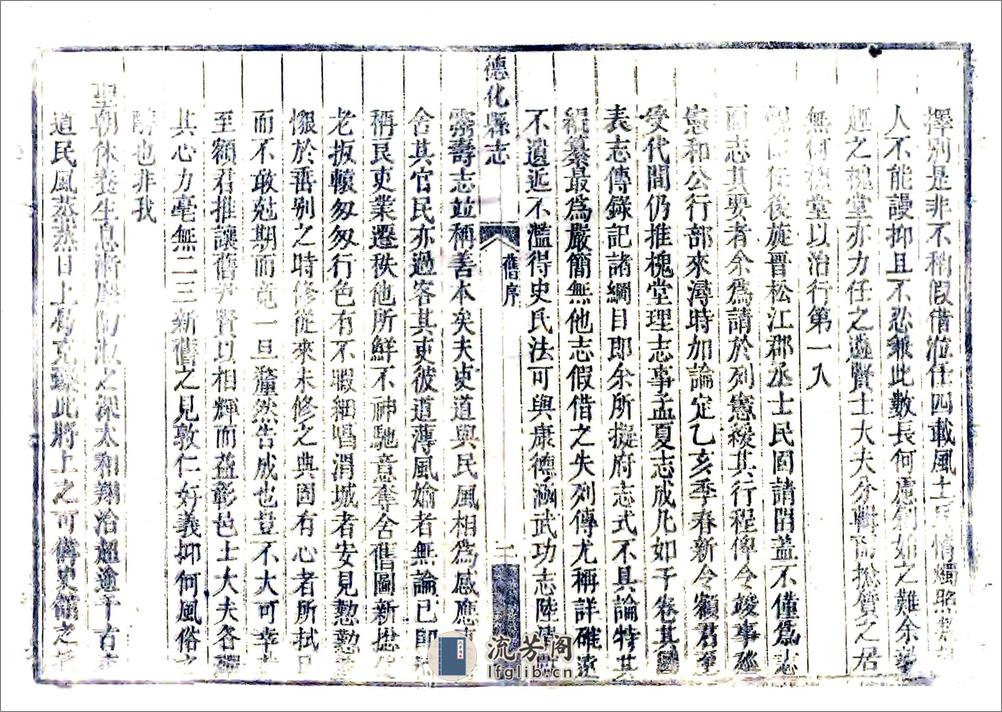 擇別是非不稍假借涖任四載風土民情燭照
人不能謾抑且不忍兼此數長何慮如之難余
之槐堂亦力任之選賢士大夫分輯而總質之居
無何槐堂以治行第一入
任後旋晉松江郡丞士民固請留蓋不僅爲志
而志其要者余爲請於列憲緩其行程俾令竣事
憲和公行部來潯時加論定乙亥季春新令額君至
受代間仍推槐堂理志事孟夏志成凡如干卷其圖
表志傳錄記諸綱目即余所擬府志式不具論特其
編纂最爲嚴簡無他志假借之失列傳尤稱詳確遠
不遺近不濫得史氏法可與康德涵武功志陸
德化縣志
舊序
靈壽志並稱善本矣夫吏道與民風相爲感應
舍其官民亦過客其吏彼道薄風媮者無論已即
稱良吏業遷秩他所鮮不神馳意奪舍舊圖新
老扳轅匆匆行色有不暇細唱渭城者安見懃懃
懇於臨别之時修從來未修之典固有心者所拭目
而不敢尅期而竟一旦犛然告成也豈不大可幸
至額君推讓舊尹賢以相輝而益彰邑士大夫各殫
其心力毫無二三新舊之見敦仁好義抑何風俗之
醇也非我
聖朝休養生息之深太和翔洽超逾千古
道民風蒸蒸日上烏克臻此將上之可備史館之
流芳阁
lfglib.cn